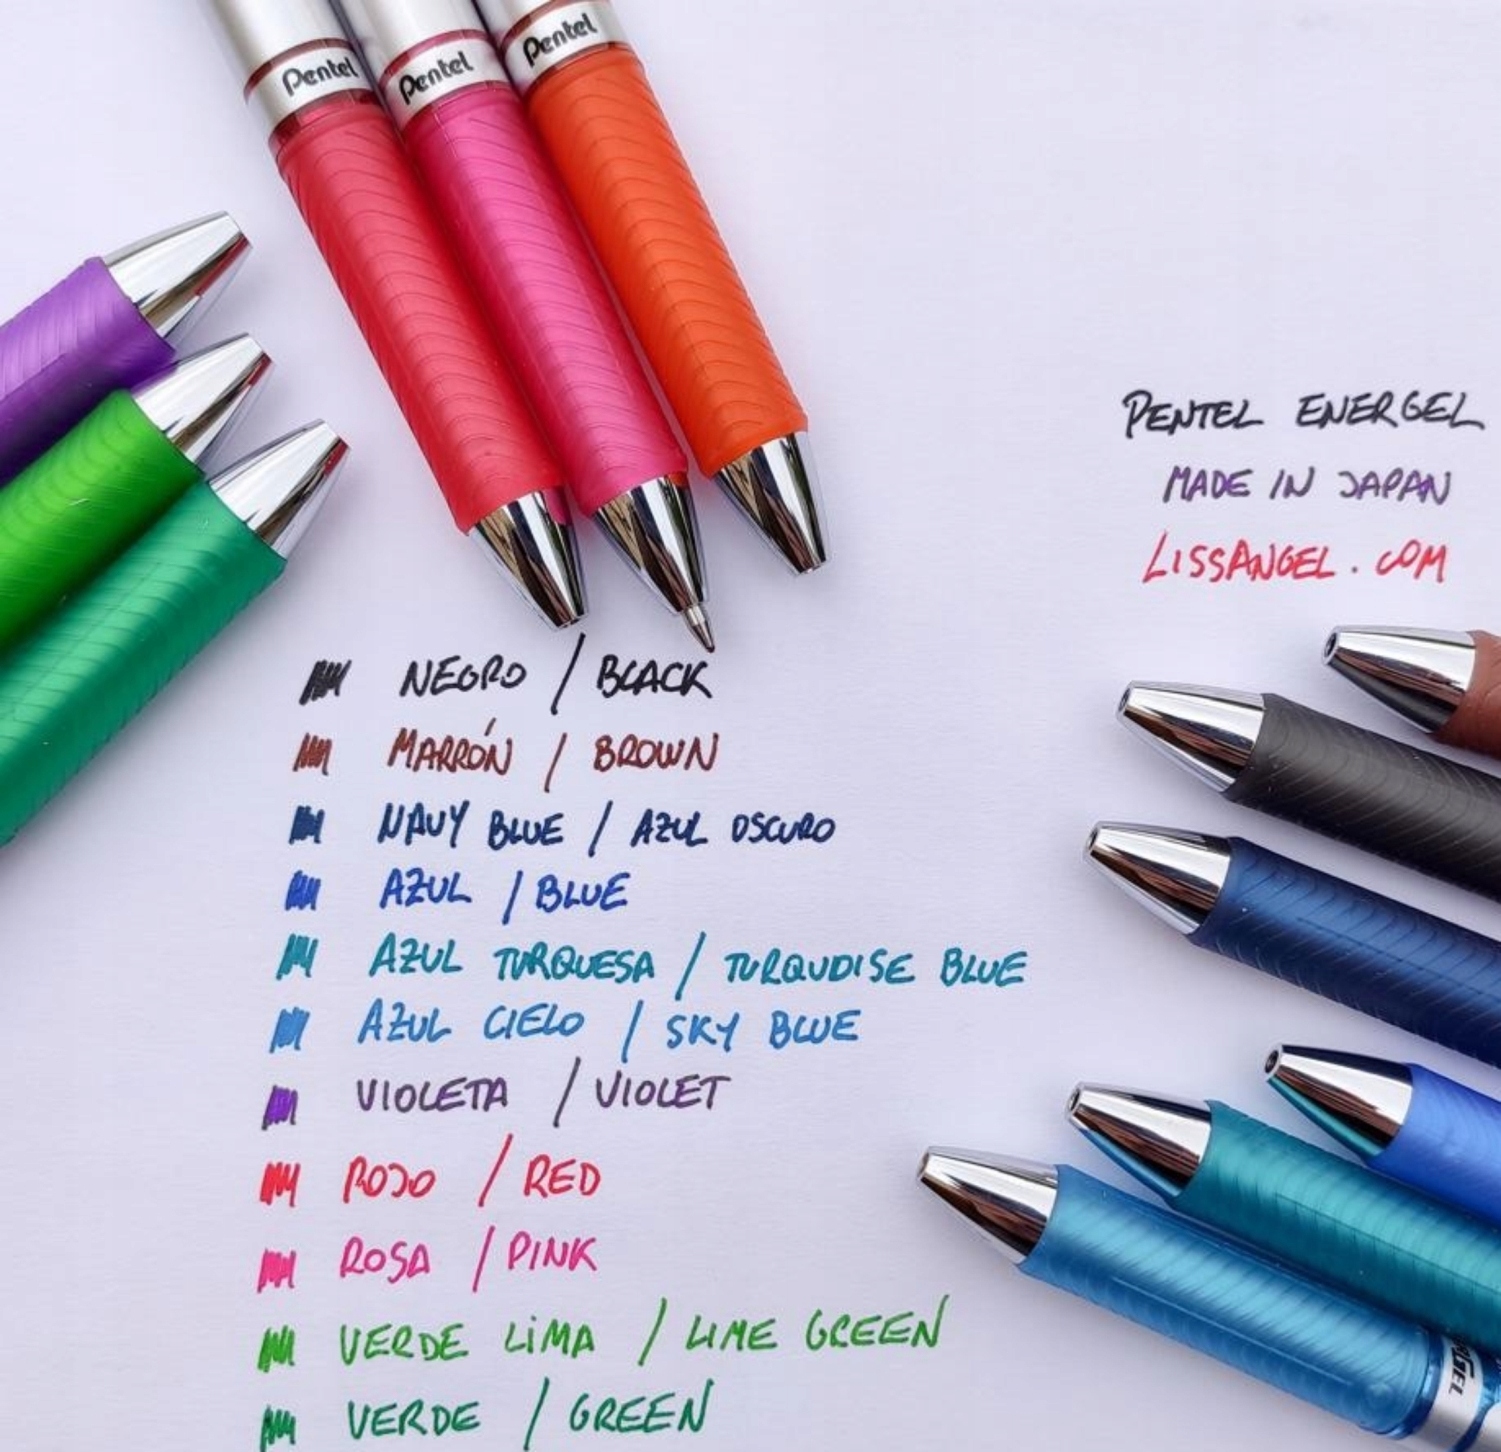 Pentel
Pentel
Pentel
PENTEL ENERGEL
MADE IN JAPAN
LISSANGEL.COM
NEGRO / BLACK
MARRÓN / BROWN
NAVY BLUE / AZUL OSCURO
AZUL / BLUE
AZUL TURQUESA / TURQUOISE BLUE
AZUL CIELO / SKY BLUE
VIOLETA / VIOLET
ROJO / RED
ROSA / PINK
VERDE LIMA / LIME GREEN
VERDE / GREEN